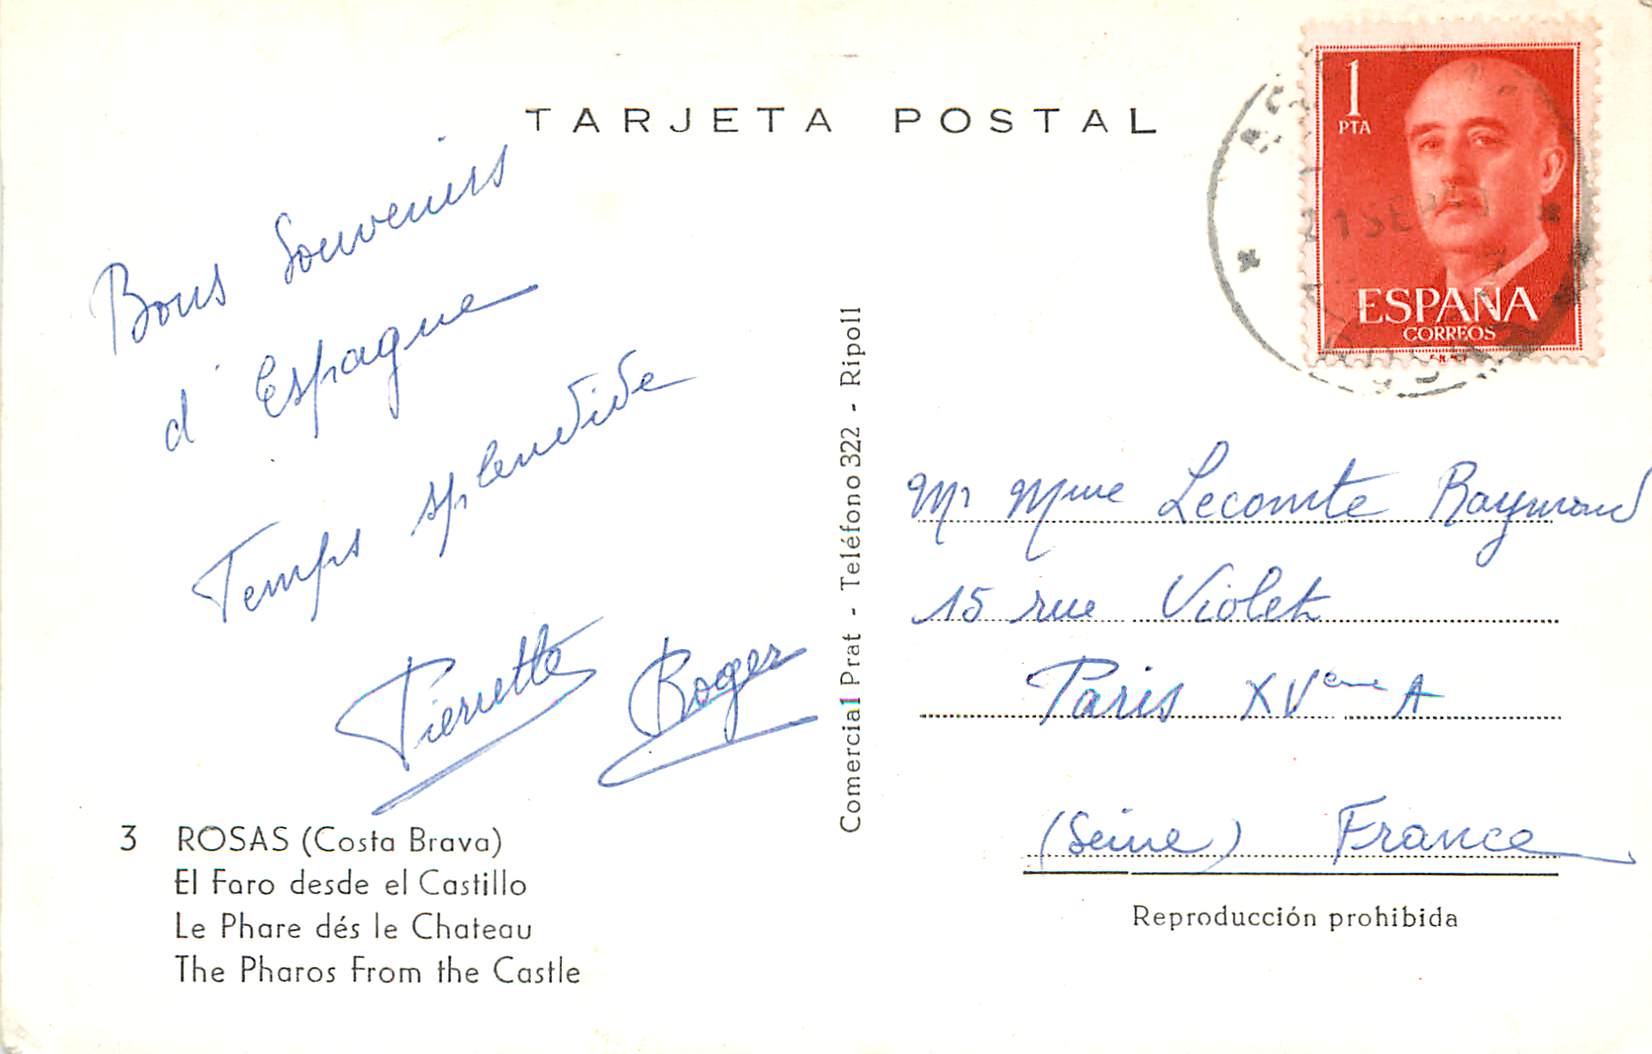 TARJETA POSTAL
1
PTA
ESPAÑA
CORREOS
21 SE
Bons Souvenirs
d'Espagne
Temps splendide
Pierrette Roger
3 ROSAS (Costa Brava)
El Faro desde el Castillo
Le Phare dés le Chateau
The Pharos From the Castle
Comercial Prat - Teléfono 322 - Ripoll
Mr Mme Lecomte Raymond
15 rue Violet
Paris XVeme A
(Seine) France
Reproducción prohibida